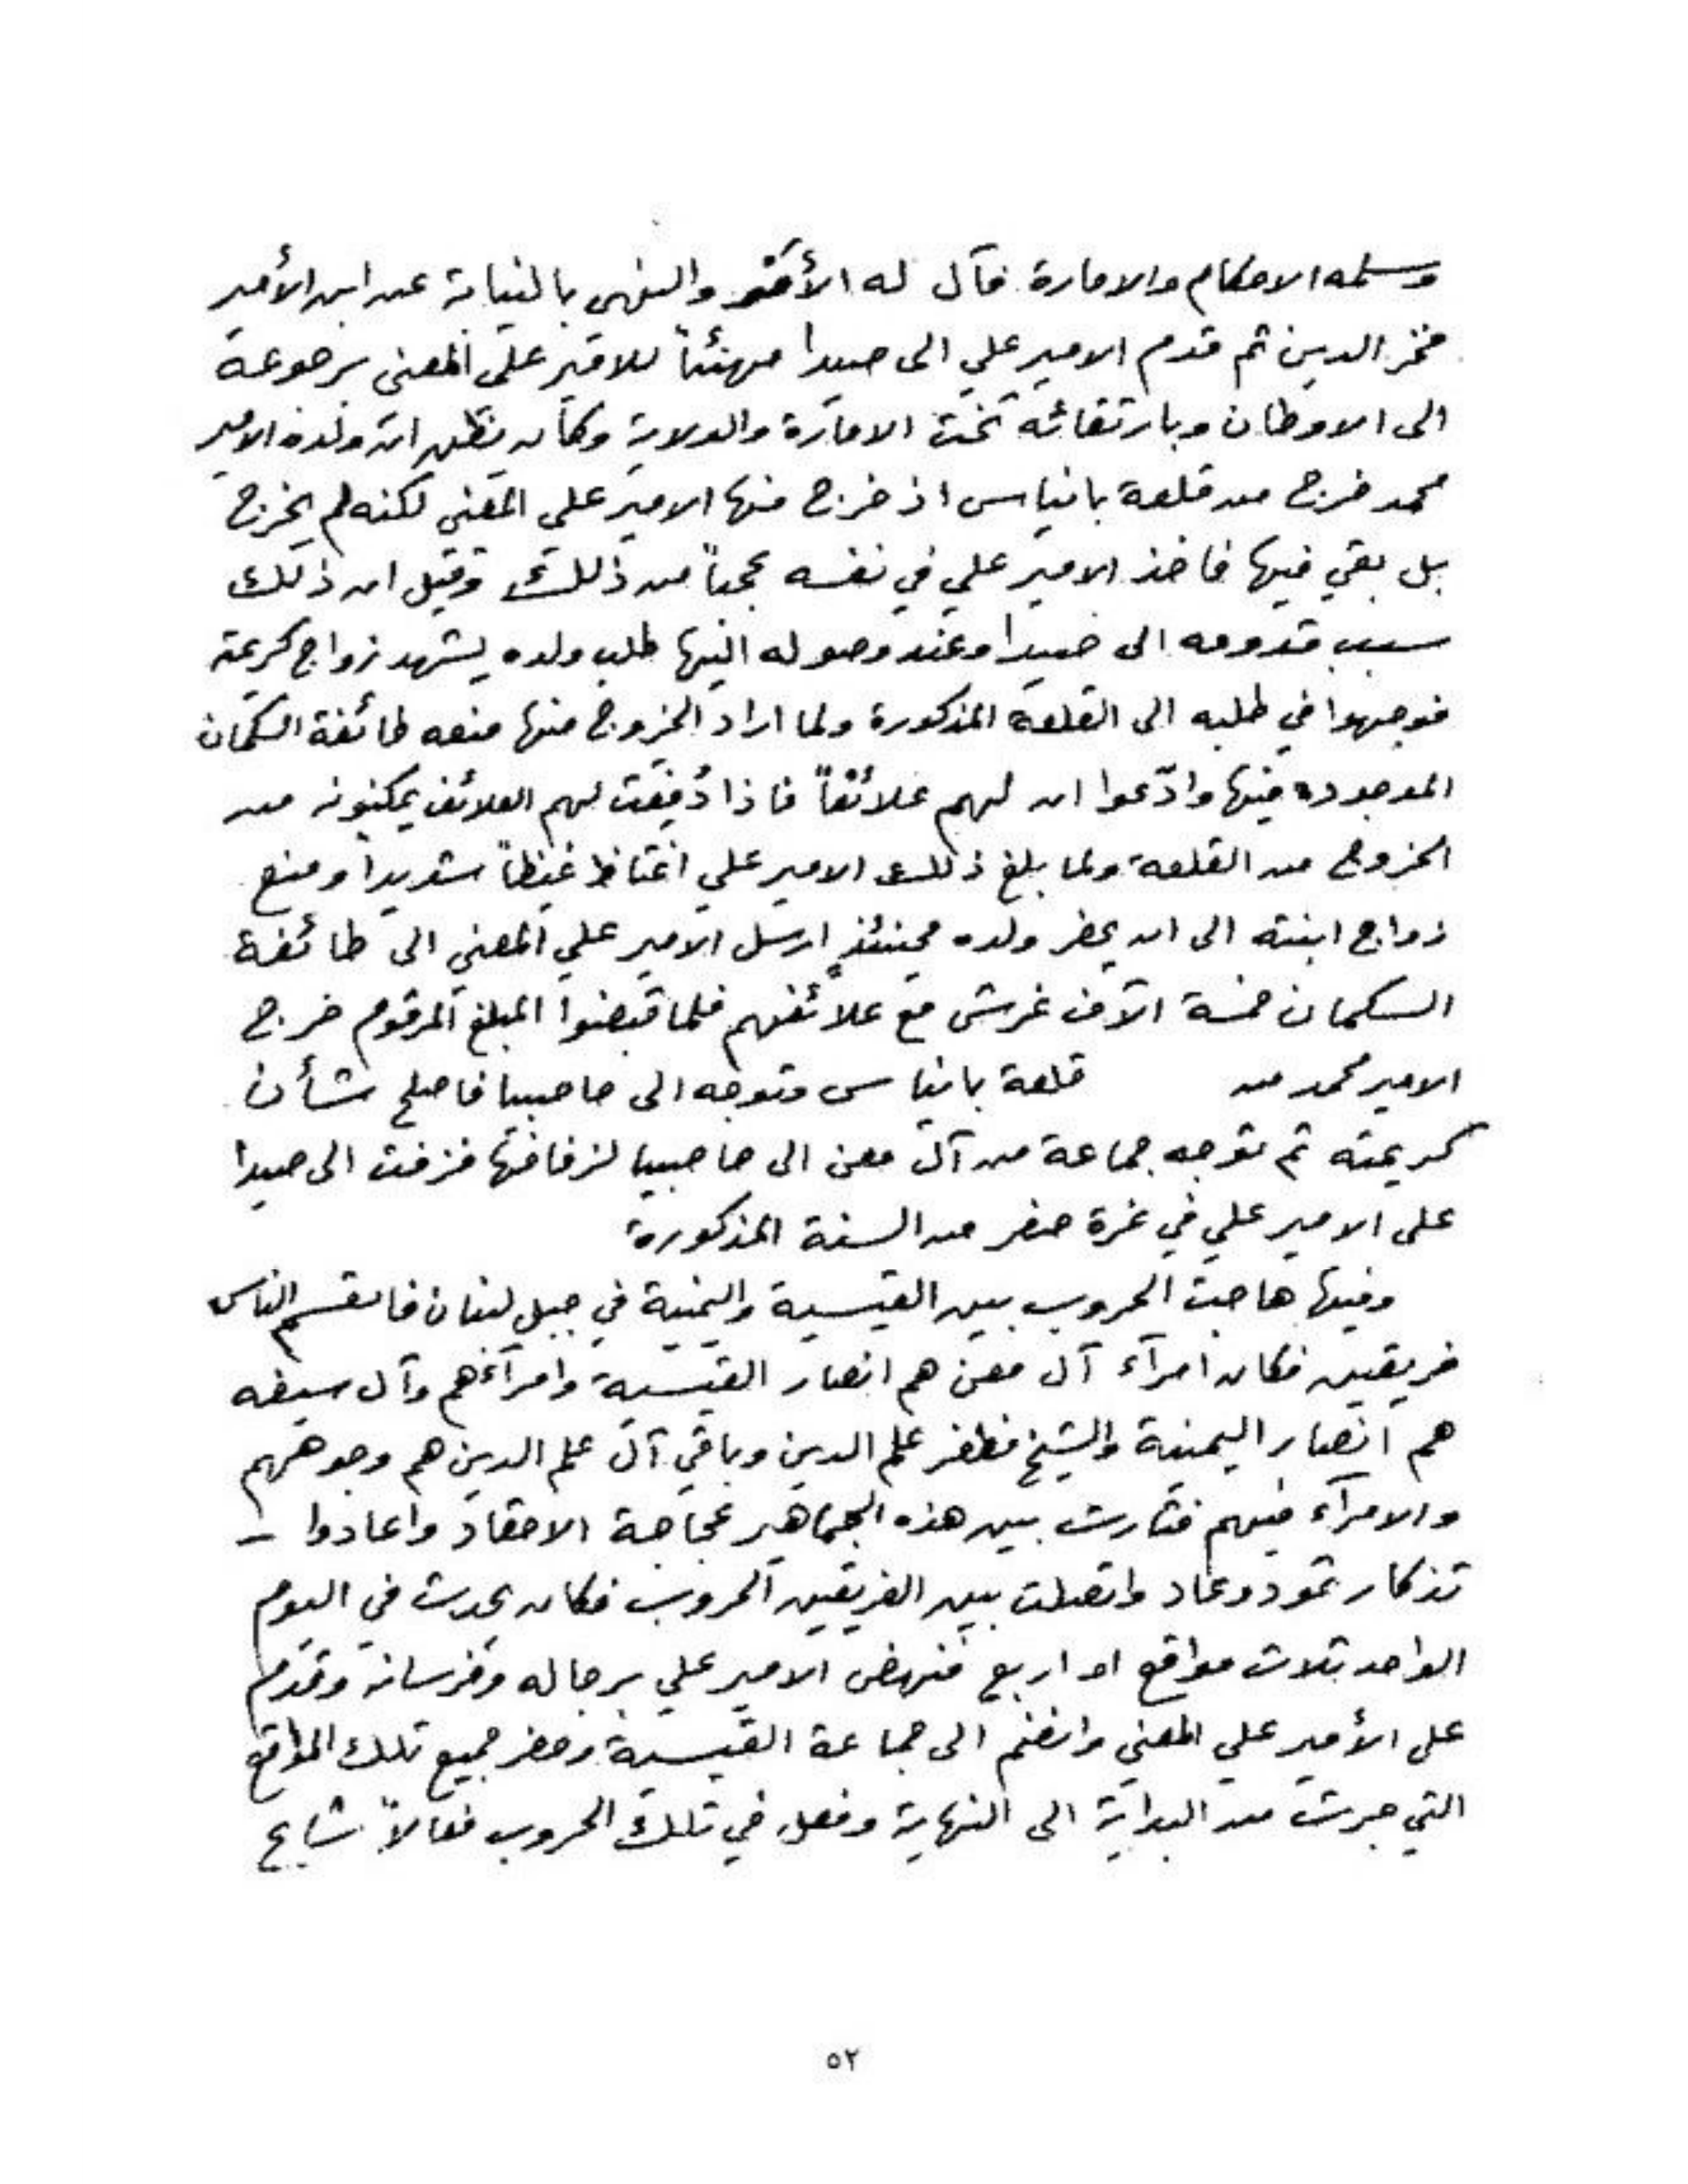 وسلمه الاحكام والامارة فآل له الأمر والنهى بالنيابة عن ابن الأمير
فخر الدين ثم قدم الامير علي الى صيدا مهنئاً للامير علي المعني برجوعه
الى الاوطان وبارتقائه تخت الامارة والولاية وكان يظن ان ولده الامير
محمد خرج من قلعة بانياس اذ خرج منها الامير علي المعني لكنه لم يخرج
بل بقي فيها فاخذ الامير علي في نفسه عجباً من ذلك وقيل ان ذلك
سبب قدومه الى صيدا وعند وصوله اليها طلب ولده يشهد زواج كريمته
فوجهوا في طلبه الى القلعة المذكورة ولما اراد الخروج منها منعه طائفة السكمان
الموجوده فيها وادّعوا ان لهم علائفاً فاذا دُفعت لهم العلائف يمكنونه من
الخروج من القلعة ولما بلغ ذلك الامير علي اغتاظ غيظاً شديداً ومنع
زواج ابنته الى ان يحضر ولده فحينئذٍ ارسل الامير علي المعني الى طائفة
السكمان خمسة الآف غرش مع علائفهم فلما قبضوا المبلغ المرقوم خرج
الامير محمد من قلعة بانياس وتوجه الى حاصبيا فاصلح شأن
كريمته ثم توجه جماعة من آل معن الى حاصبيا لزفافها فزفت الى صيدا
على الامير علي في غرة صفر من السنة المذكورة
وفيها هاجت الحروب بين القيسية واليمنية في جبل لبنان فانقسم الناس
فريقين فكان امرآء آل معن هم انصار القيسية وامرآءهم وآل سيفه
هم انصار اليمنية والشيخ مظفر علم الدين وباقي آل علم الدين هم وجوههم
والامرآء فيهم فثارت بين هذه الجماهير عجاجة الاحقاد واعادوا –
تذكار ثمود وعاد واتصلت بين الفريقين الحروب فكان يحدث في اليوم
الواحد ثلاث مواقع او اربع فنهض الامير علي برجاله وفرسانه وقدم
على الأمير علي المعني وانضم الى جماعة القيسية وحضر جميع تلك المواقع
التي جرت من البداية الى النهاية وفعل في تلك الحروب فعالاً شاع
٥٢